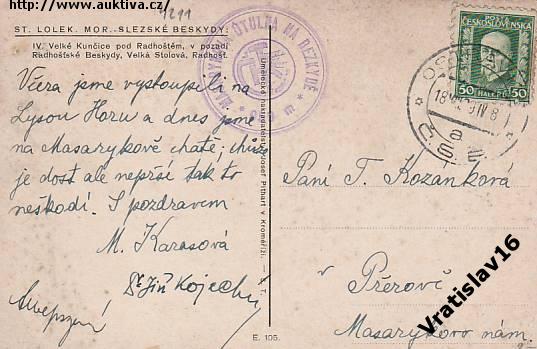 http://www.auktiva.cz/
4211
ST. LOLEK. MOR.-SLEZSKÉ BESKYDY.
IV. Velké Kunčice pod Radhoštěm, v pozadí
Radhošťské Beskydy, Velká Stolová, Radhošť.
MASARYKOVA ÚTULNA NA BESKYDĚ
POŠTA
ČESKOSLOVENSKÁ
50 HALÉŘŮ 50
18
ČSR
Včera jsme vystoupili na
Lysou Horu a dnes jsme
na Masarykově chatě;
je dost ale neprší tak to
neškodí. S pozdravem
M. Karasová
Jiří
Umělecké nakladatelství Josef Pithart v Kroměříži.
Paní T. Kozanková
v Přerově
Masarykovo nám.
E. 105.
Vratislav16